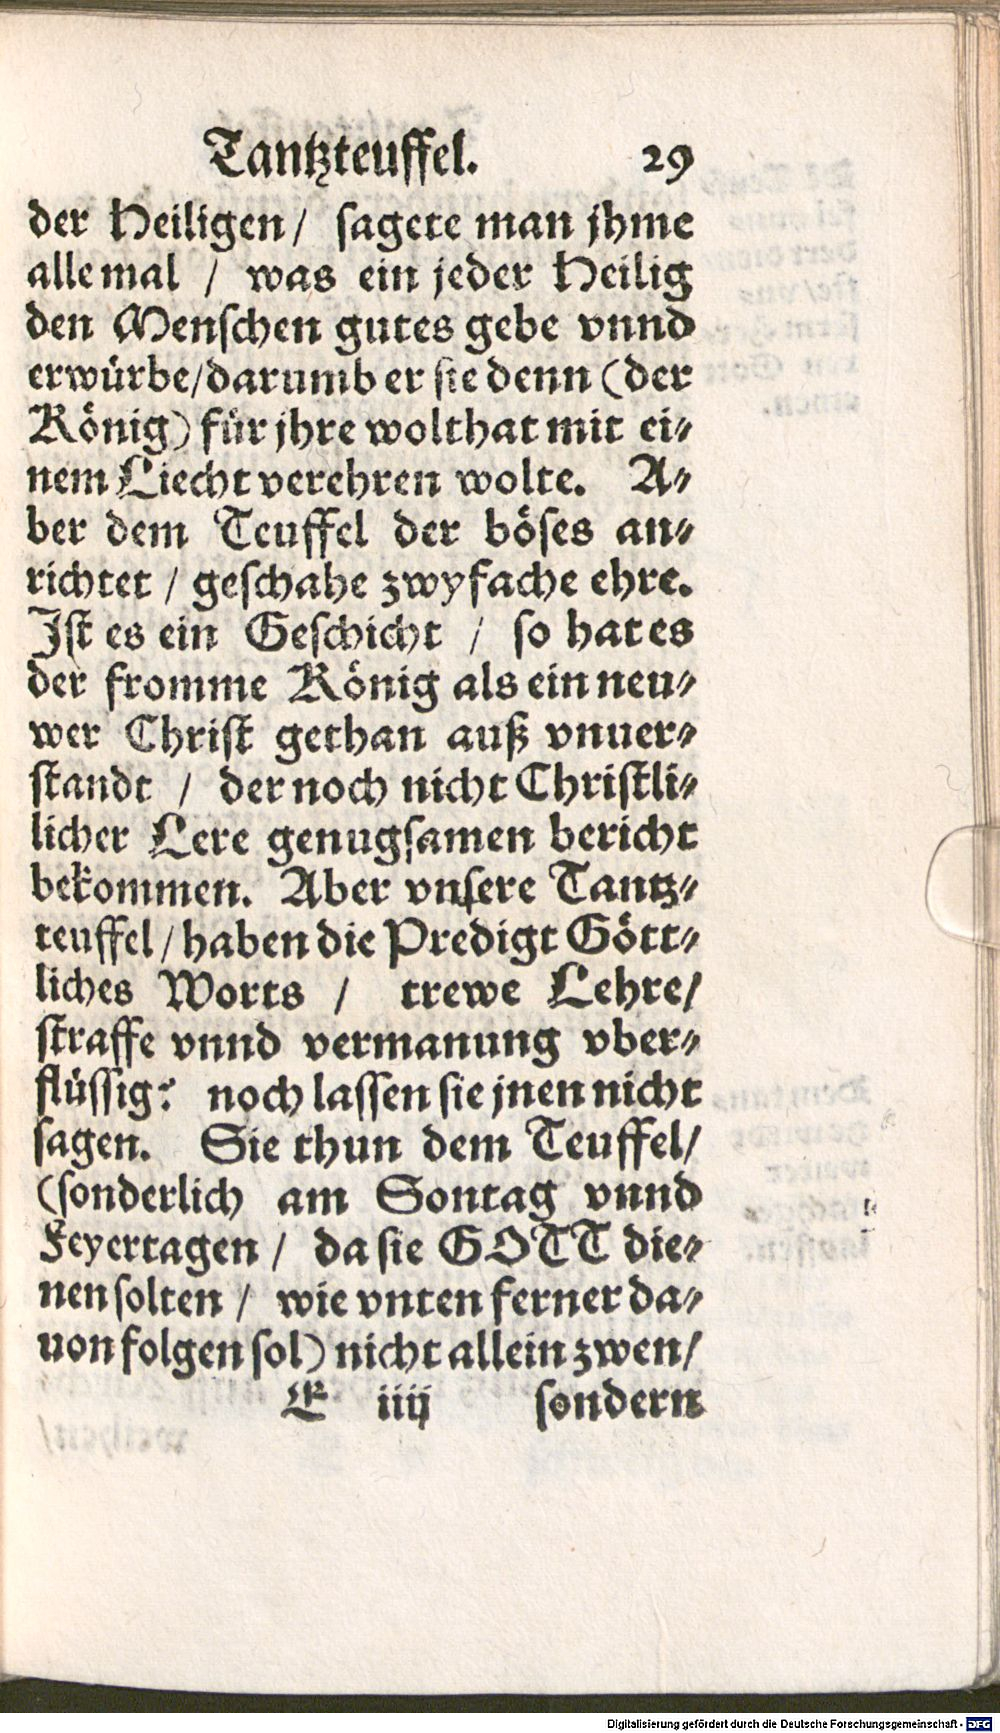 Tantzteuffel. 29
der Heiligen / sagete man jhme
allemal / was ein jeder Heilig
den Menschen gutes gebe vnnd
erwürbe/darumb er sie denn (der
König) für jhre wolthat mit ei-
nem Liecht verehren wolte. A-
ber dem Teuffel der böses an-
richtet / geschahe zwyfache ehre.
Ist es ein Geschicht / so hat es
der fromme König als ein neu-
wer Christ gethan auß vnuer-
standt / der noch nicht Christli-
licher Lere genugsamen bericht
bekommen. Aber vnsere Tantz-
teuffel / haben die Predigt Gött-
liches Worts / trewe Lehre/
straffe vnnd vermanung vber-
flüssig: noch lassen sie jnen nicht
sagen. Sie thun dem Teuffel/
(sonderlich am Sontag vnnd
Feyertagen / da sie GOTT die-
nen solten / wie vnten ferner da-
uon folgen sol) nicht allein zwen/
E iiij sondern
Digitalisierung gefördert durch die Deutsche Forschungsgemeinschaft - DFG